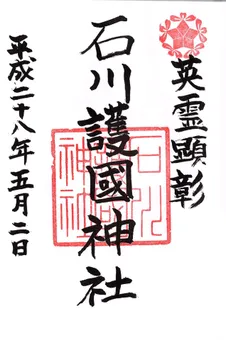 英霊顕彰
石川護國神社
平成二十八年五月二日